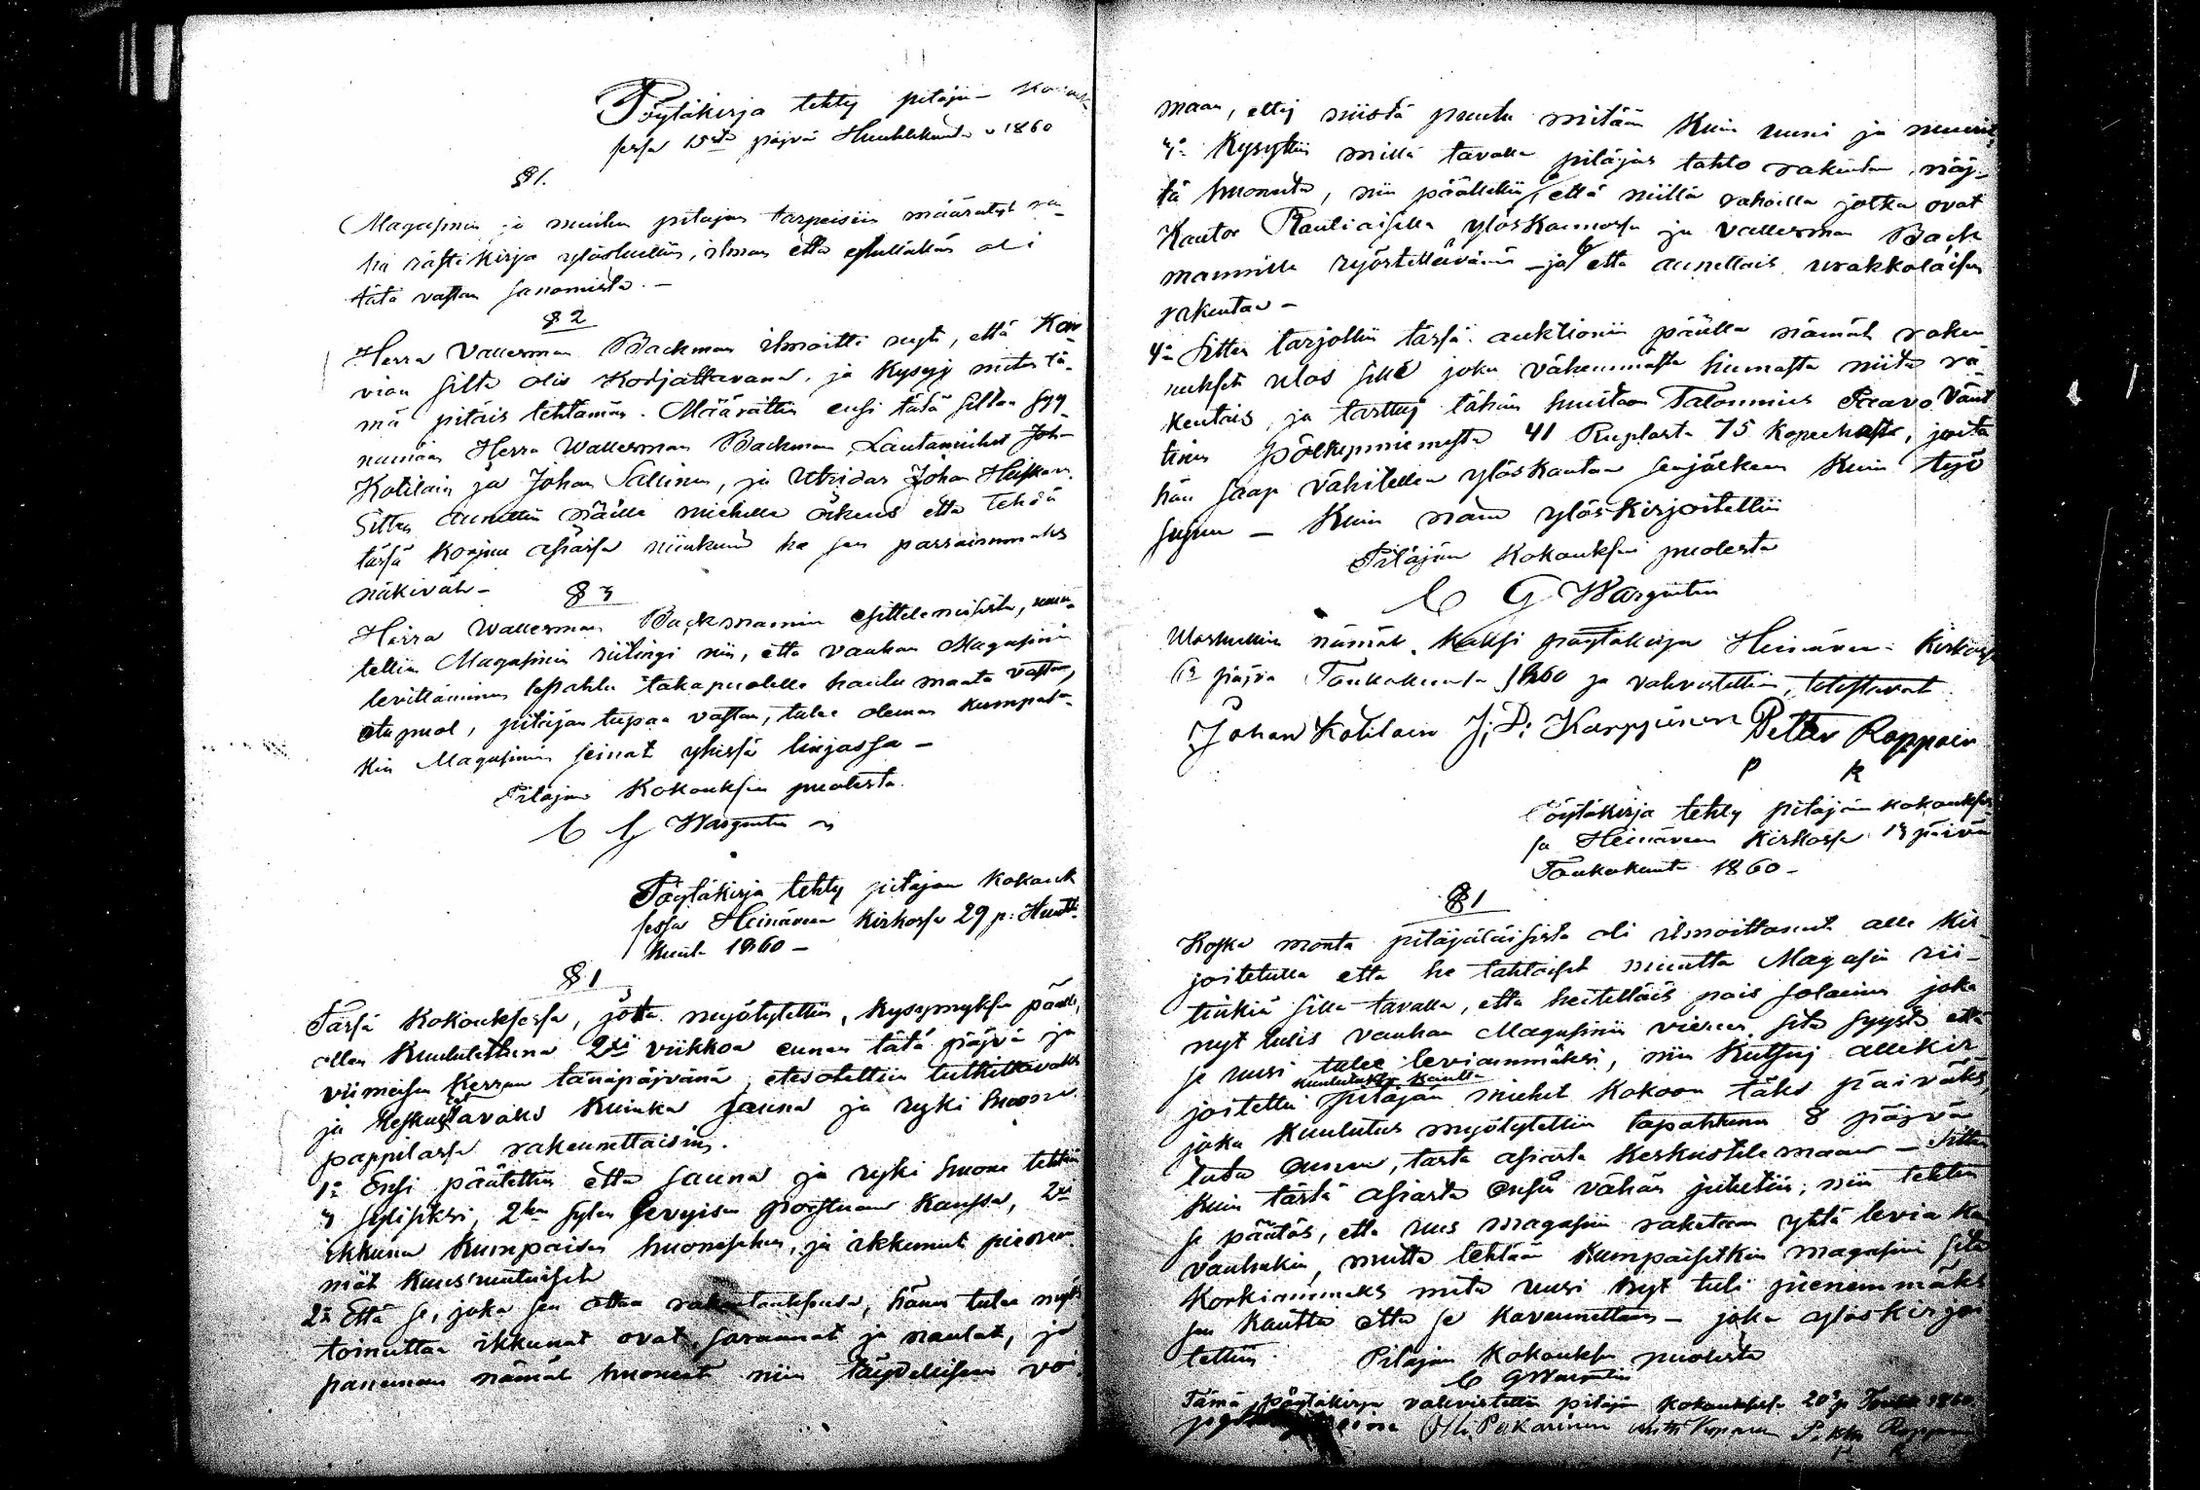 Pöytäkirja tehty pitäjän kokouk
sessa 15ta päjvä Huhtikuuta v 1860
§ 1.
Magasinin ja muihin pitäjän tarpeisiin määrätyt
rästikirja ylösluettiin, ilman että esulläkään oli
tätä vastan sanomista. -
§ 2
Herra Vallesman Backman ilmoitti nyt, että Ker
vian silta olis korjattavana, ja kysyy miten tä-
mä pitäis tehtämän. Määrättiin ensi tätä siltaa syy
nämään Herra Wallesman Backman, Lautamiehet Joh
Kotilain ja Johan Sallinen, ja Utridar Johan Heiskan.
Sitten annettiin näille miehille oikeus että tehdä
tässä korjuu asiassa niinkuin he sen parraimmaks
näkivät -
§ 3
Herra Wallesman Backmannin esittelemisestä, muu-
tettiin Magasinin riitingi niin, että vanhan Magasinin
levittäminen tapahtu takapuolelle hauta maata vastan,
etupuol, pitäjän tupaa vastan, tulee oleman kumpat-
kin Magasinin seinät yhessä linjassa -
Pitäjän Kokouksen puolesta
C G Wargentin
Pöytäkirja tehty pitäjän kokouk
sessa Heinäveen kirkossa 29 p: Huhti-
kuuta 1860 -
§ 1
Tässä kokouksessa, jota myötytettiin, kysymyksen päälle,
ollen kuulutettuna 2si viikkoa ennen tätä päjvä ja
viimeisen kerran tänäpäjvänä, etesotettiin tutkittavaks
ja keskusteltavaks kuinka sauna ja ryki huone
pappilassa rakennettaisiin.
1o Ensi päätettiin että sauna ja ryki huone tehtiin
3 syliseksi, 2hen sylen levyisen porstuan kanssa, 2si
ikkuna kumpaisen huoneseen, ja ikkunat pienem
mät kuus'ruutuiset
2o Että se, joka sen ottaa rakentaaksensa, hänen tulee myös
toimittaa ikkunat ovat, saraanat ja naulat, ja
paneman nämät huoneet niin täydellisen voi
maan, ettej niistä puutu mitään kuin uuni ja muuri.
3o Kysyttiin millä tavalla pitäjäs tahto rakentaa näj-
tä huoneita, niin päätettiin, a että niillä rahoilla jotka ovat
Kantor Rautiaisella ylöskannossa ja Vallesman Back
mannilla ryöstettävänä - ja b että annettais urakkoläisen
rakentaa -
4o Sitten tarjottiin tässä auktionin päälle nämät raken
nukset ulos sille joka vähemmästä hinnasta niitä ra-
kentais, ja tarttuj tähän huutoon Talonmies Paavo Vänt
tinen Pölkynniemestä 41 Ruplasta 75 Kopeekasta, joita
hän saap vähitellen ylöskantaa senjälkeen kuin työ
sujuu - Kuin näin ylöskirjoitettiin
Pitäjän Kokouksen puolesta
C G Wargentin
Ulosluettiin nämät kaksi pöytäkirjaa Heinäveen Kirkossa
13 päjvä Toukokuuta 1860 ja vahvistettiin, totistavat
Johan Kotilain J: D: Karppinen Petter Roppoin
P R
Pöytäkirja tehty pitäjän kokoukses
sa Heinäveen Kirkossa 13 päivä
Toukokuuta 1860 -
§ 1
Koska monta pitäjäläisistä oli ilmoittanut alle kir
joitetulle että he tahtoisit muuttaa Magasin rii-
tinkiä sillä tavalla, että heitettäis pois solainen joka
nyt tulis vanhan Magasinin vieren, sitä syystä että
se uusi tulee leviammäksi, niin kutsuj allekir
kuulutuksen kautta
joitettu pitäjän miehet kokoon täks päiväks,
joka kuulutus myötytettiin tapahtunu 8 päjvä
tätä ennen, tästä asiasta keskustelemaan - Sitten
kuin tästä asiasta ensin vähän puhuttiin, niin tehtiin
se päätös, että uus magasin raketaan yhtä leviä kuin
vanhakin, mutta tehtään kumpaisetkin magasini sitä
korkiammaks mitä uusi nyt tuli pienemmäks
sen kautta että se kavennettaan - joka ylöskirjoi
tettiin Pitäjän Kokouksen puolesta
C G Wargentin
Tämä pöytäkirja vahvistettiin pitäjän kokouksessa 20 p Touko 1860.
Olli Pakarinen Pekka Roppo